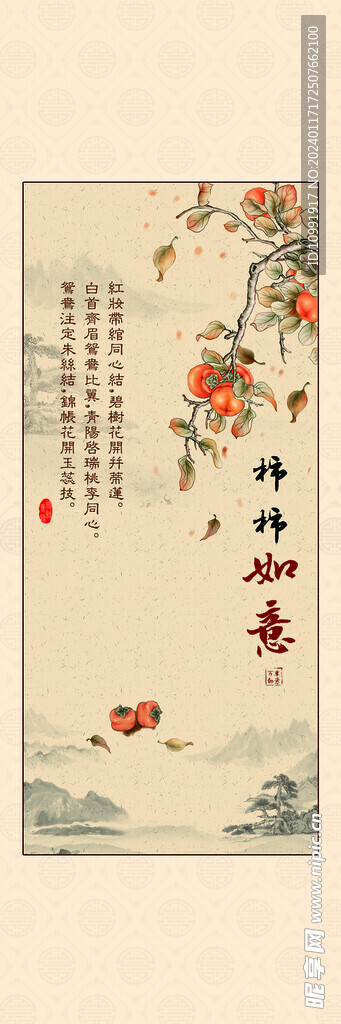 柿柿如意
紅妝帶綰同心結,碧樹花開幷蒂蓮。
白首齊眉鴛鴦比翼,青陽啓瑞桃李同心。
鴛鴦注定朱絲結,錦帳花開玉蕊技。
NO:20240117172507662100
ID:10991917
昵享网 www.nipic.cn